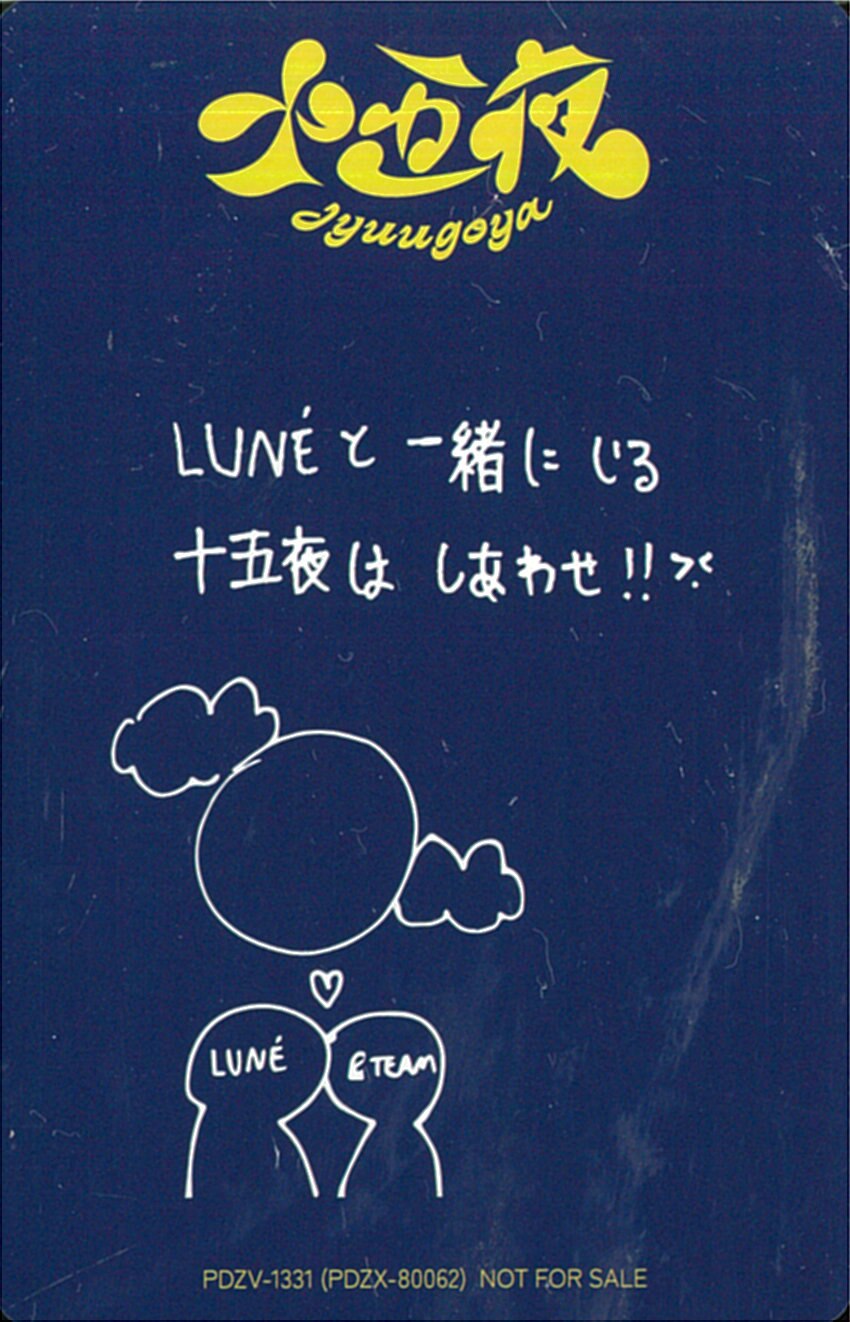 十五夜
Jyuugoya
LUNÉと 一緒に いる
十五夜は しあわせ!! ><
LUNÉ &TEAM
PDZV-1331 (PDZX-80062) NOT FOR SALE